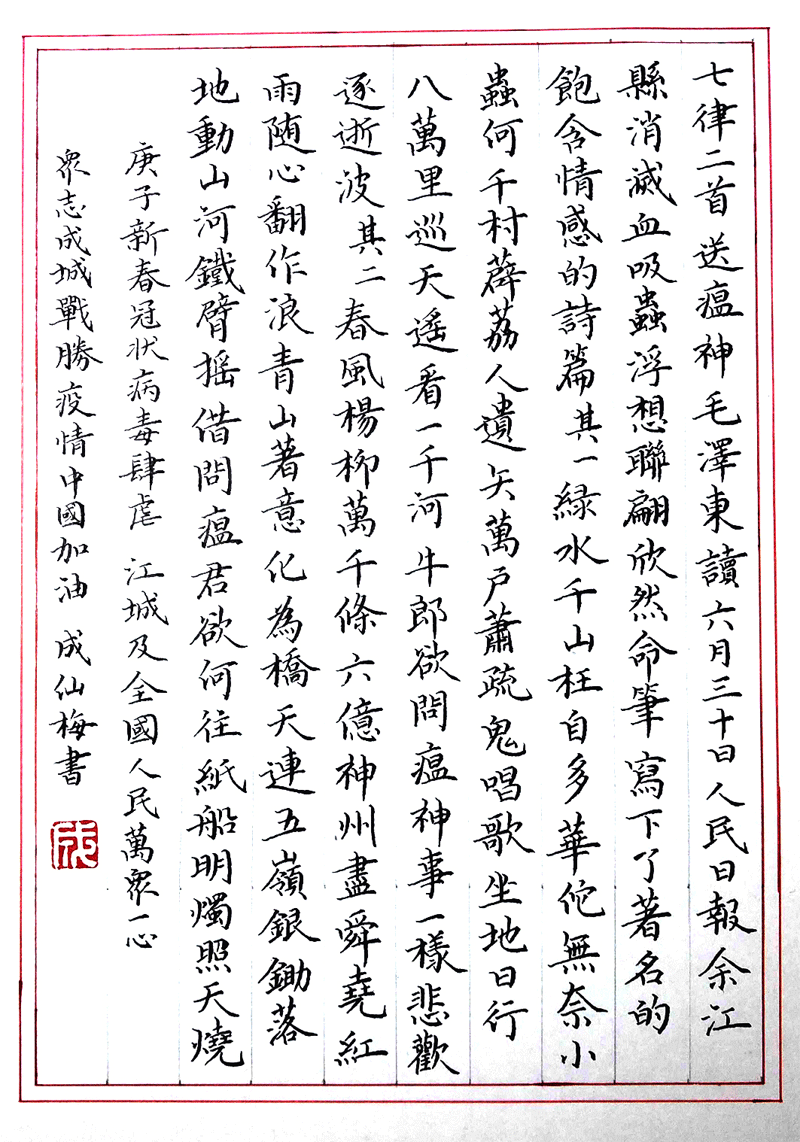 七律二首送瘟神毛澤東讀六月三十日人民日報余江
縣消滅血吸蟲浮想聯翩欣然命筆寫下了著名的
飽含情感的詩篇其一綠水千山枉自多華佗無奈小
蟲何千村薜荔人遺矢萬戶蕭疏鬼唱歌坐地日行
八萬里巡天遙看一千河牛郎欲問瘟神事一樣悲歡
逐逝波其二春風楊柳萬千條六億神州盡舜堯紅
雨随心翻作浪青山著意化為橋天連五嶺銀鋤落
地動山河鐵臂摇借問瘟君欲何往紙船明燭照天燒
庚子新春冠状病毒肆虐 江城及全國人民萬衆一心
衆志成城戰勝疫情中國加油 成仙梅書
成